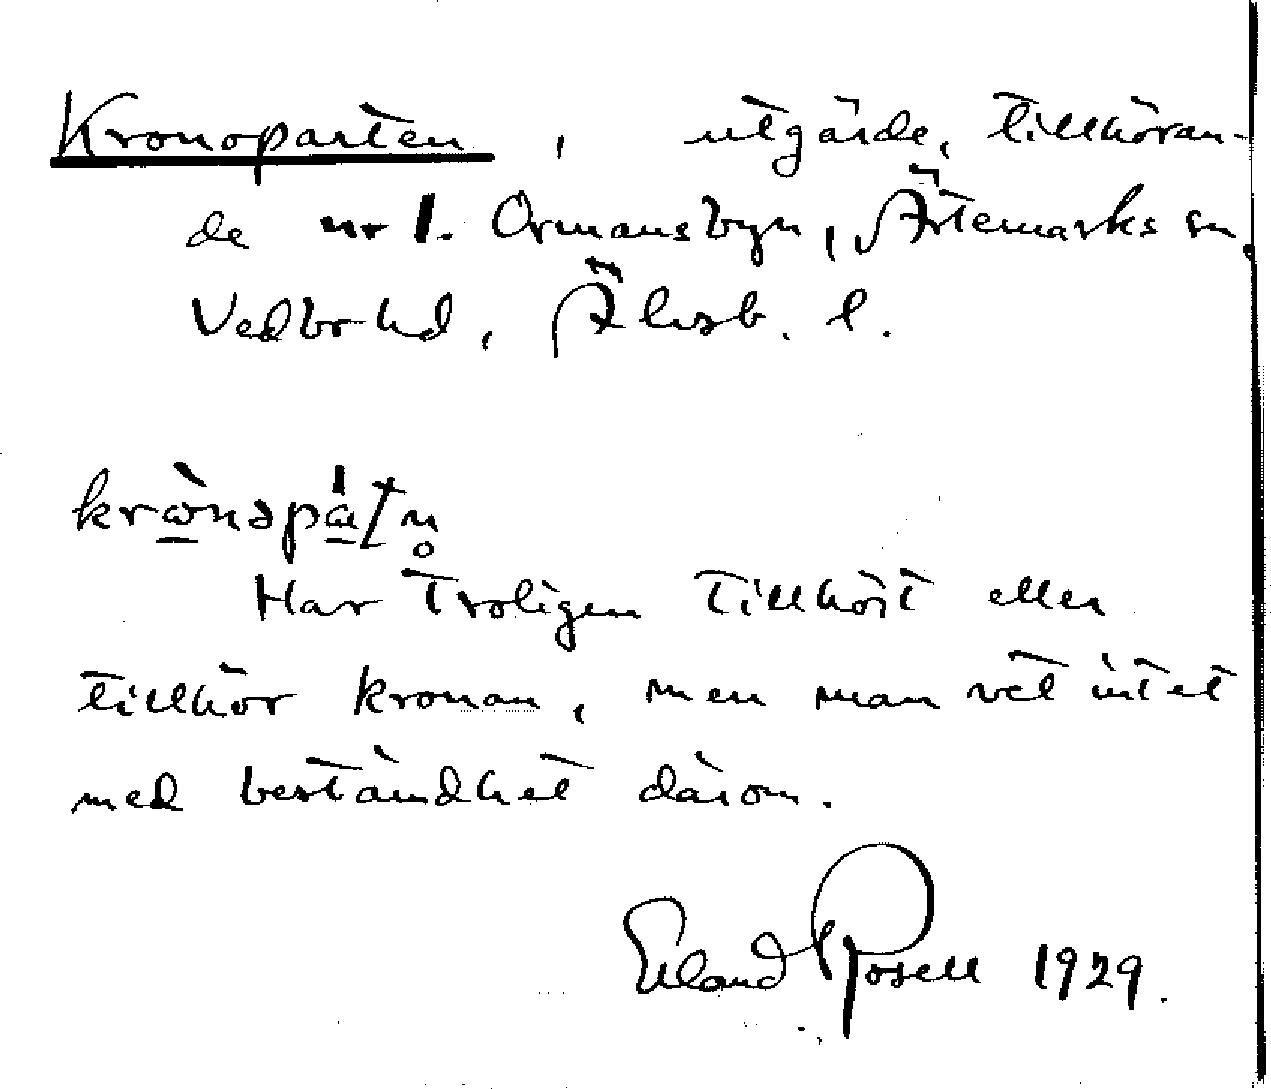 Kronoparten, utgärde, tillhöran-
de nr 1. Ormansbyn, Ärtemarks sn,
Vedbo hd, Älvsb. l.
Har troligen tillhört eller
tillhör kronan, men man vet intet
med bestämdhet därom.
Erland Rosell 1929.